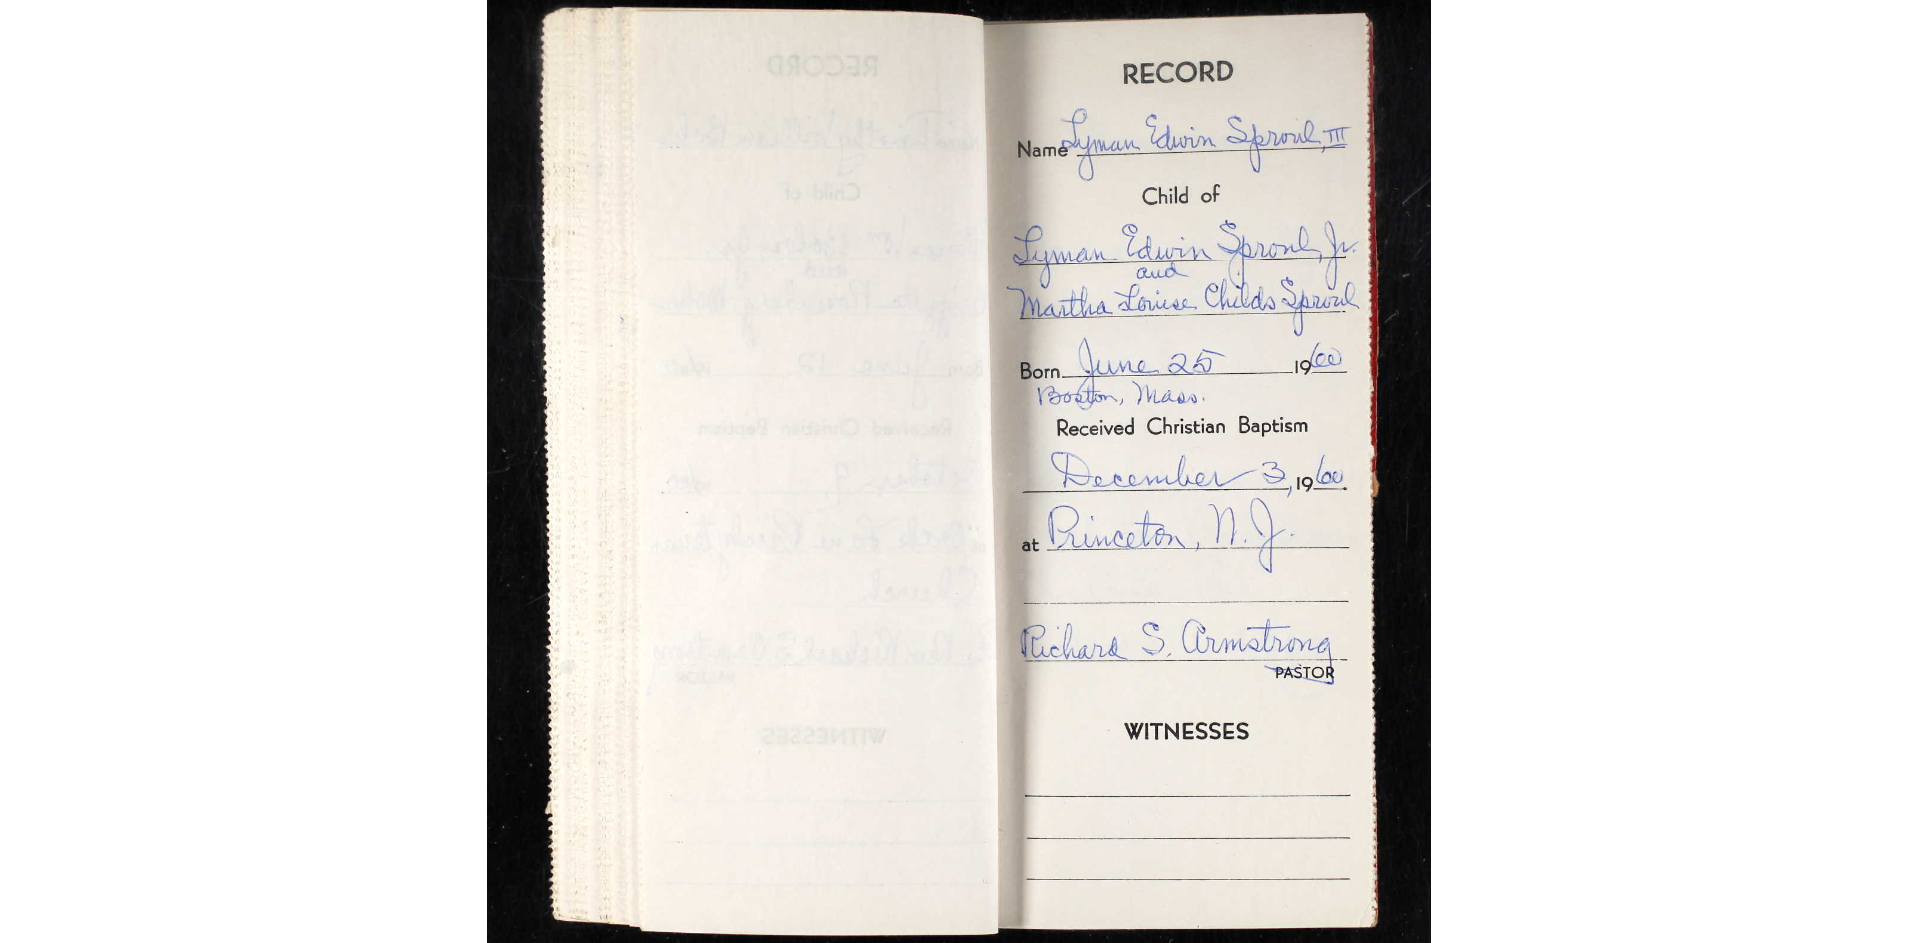 RECORD
Name Lyman Edwin Sproul, III
Child of
Lyman Edwin Sproul, Jr.
and
Martha Louise Childs Sproul
Born June 25 1960
Boston, Mass.
Received Christian Baptism
December 3, 1960.
at Princeton, N.J.
Richard S. Armstrong
PASTOR
WITNESSES